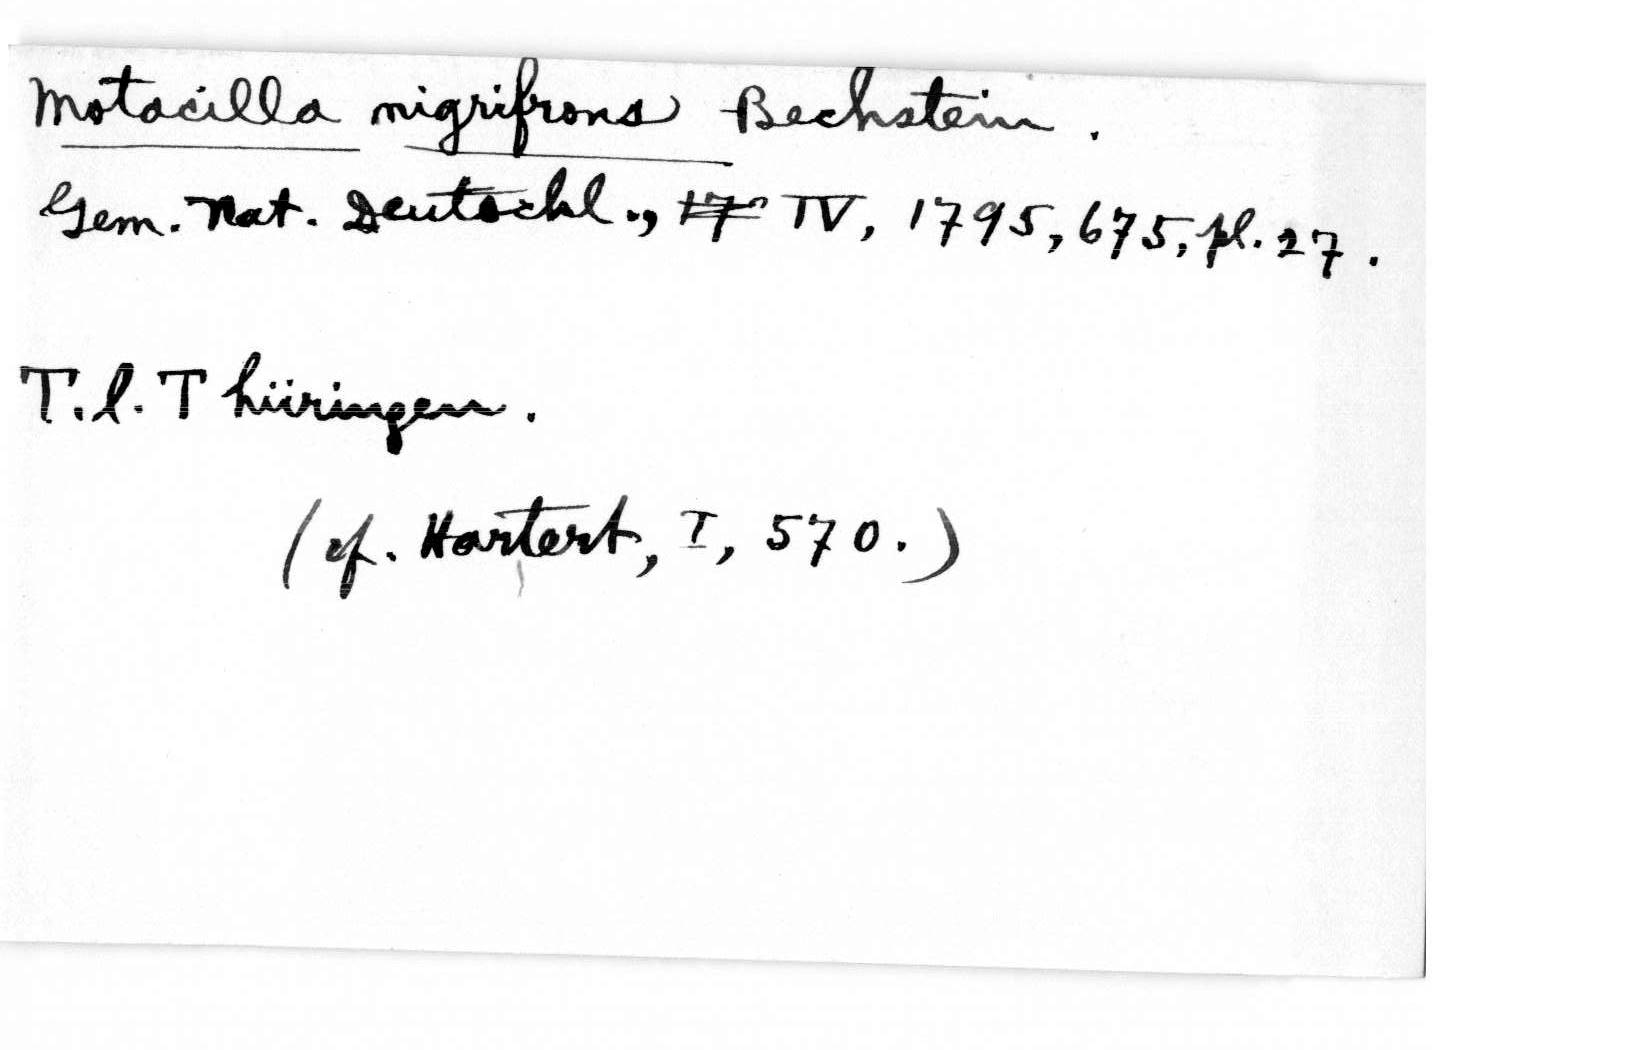 Motacilla nigrifrons Bechstein.
Gem. Nat. Deutschl., IV, 1795, 675, pl. 27.
T. l. Thüringen.
(cf. Hartert, I, 570.)